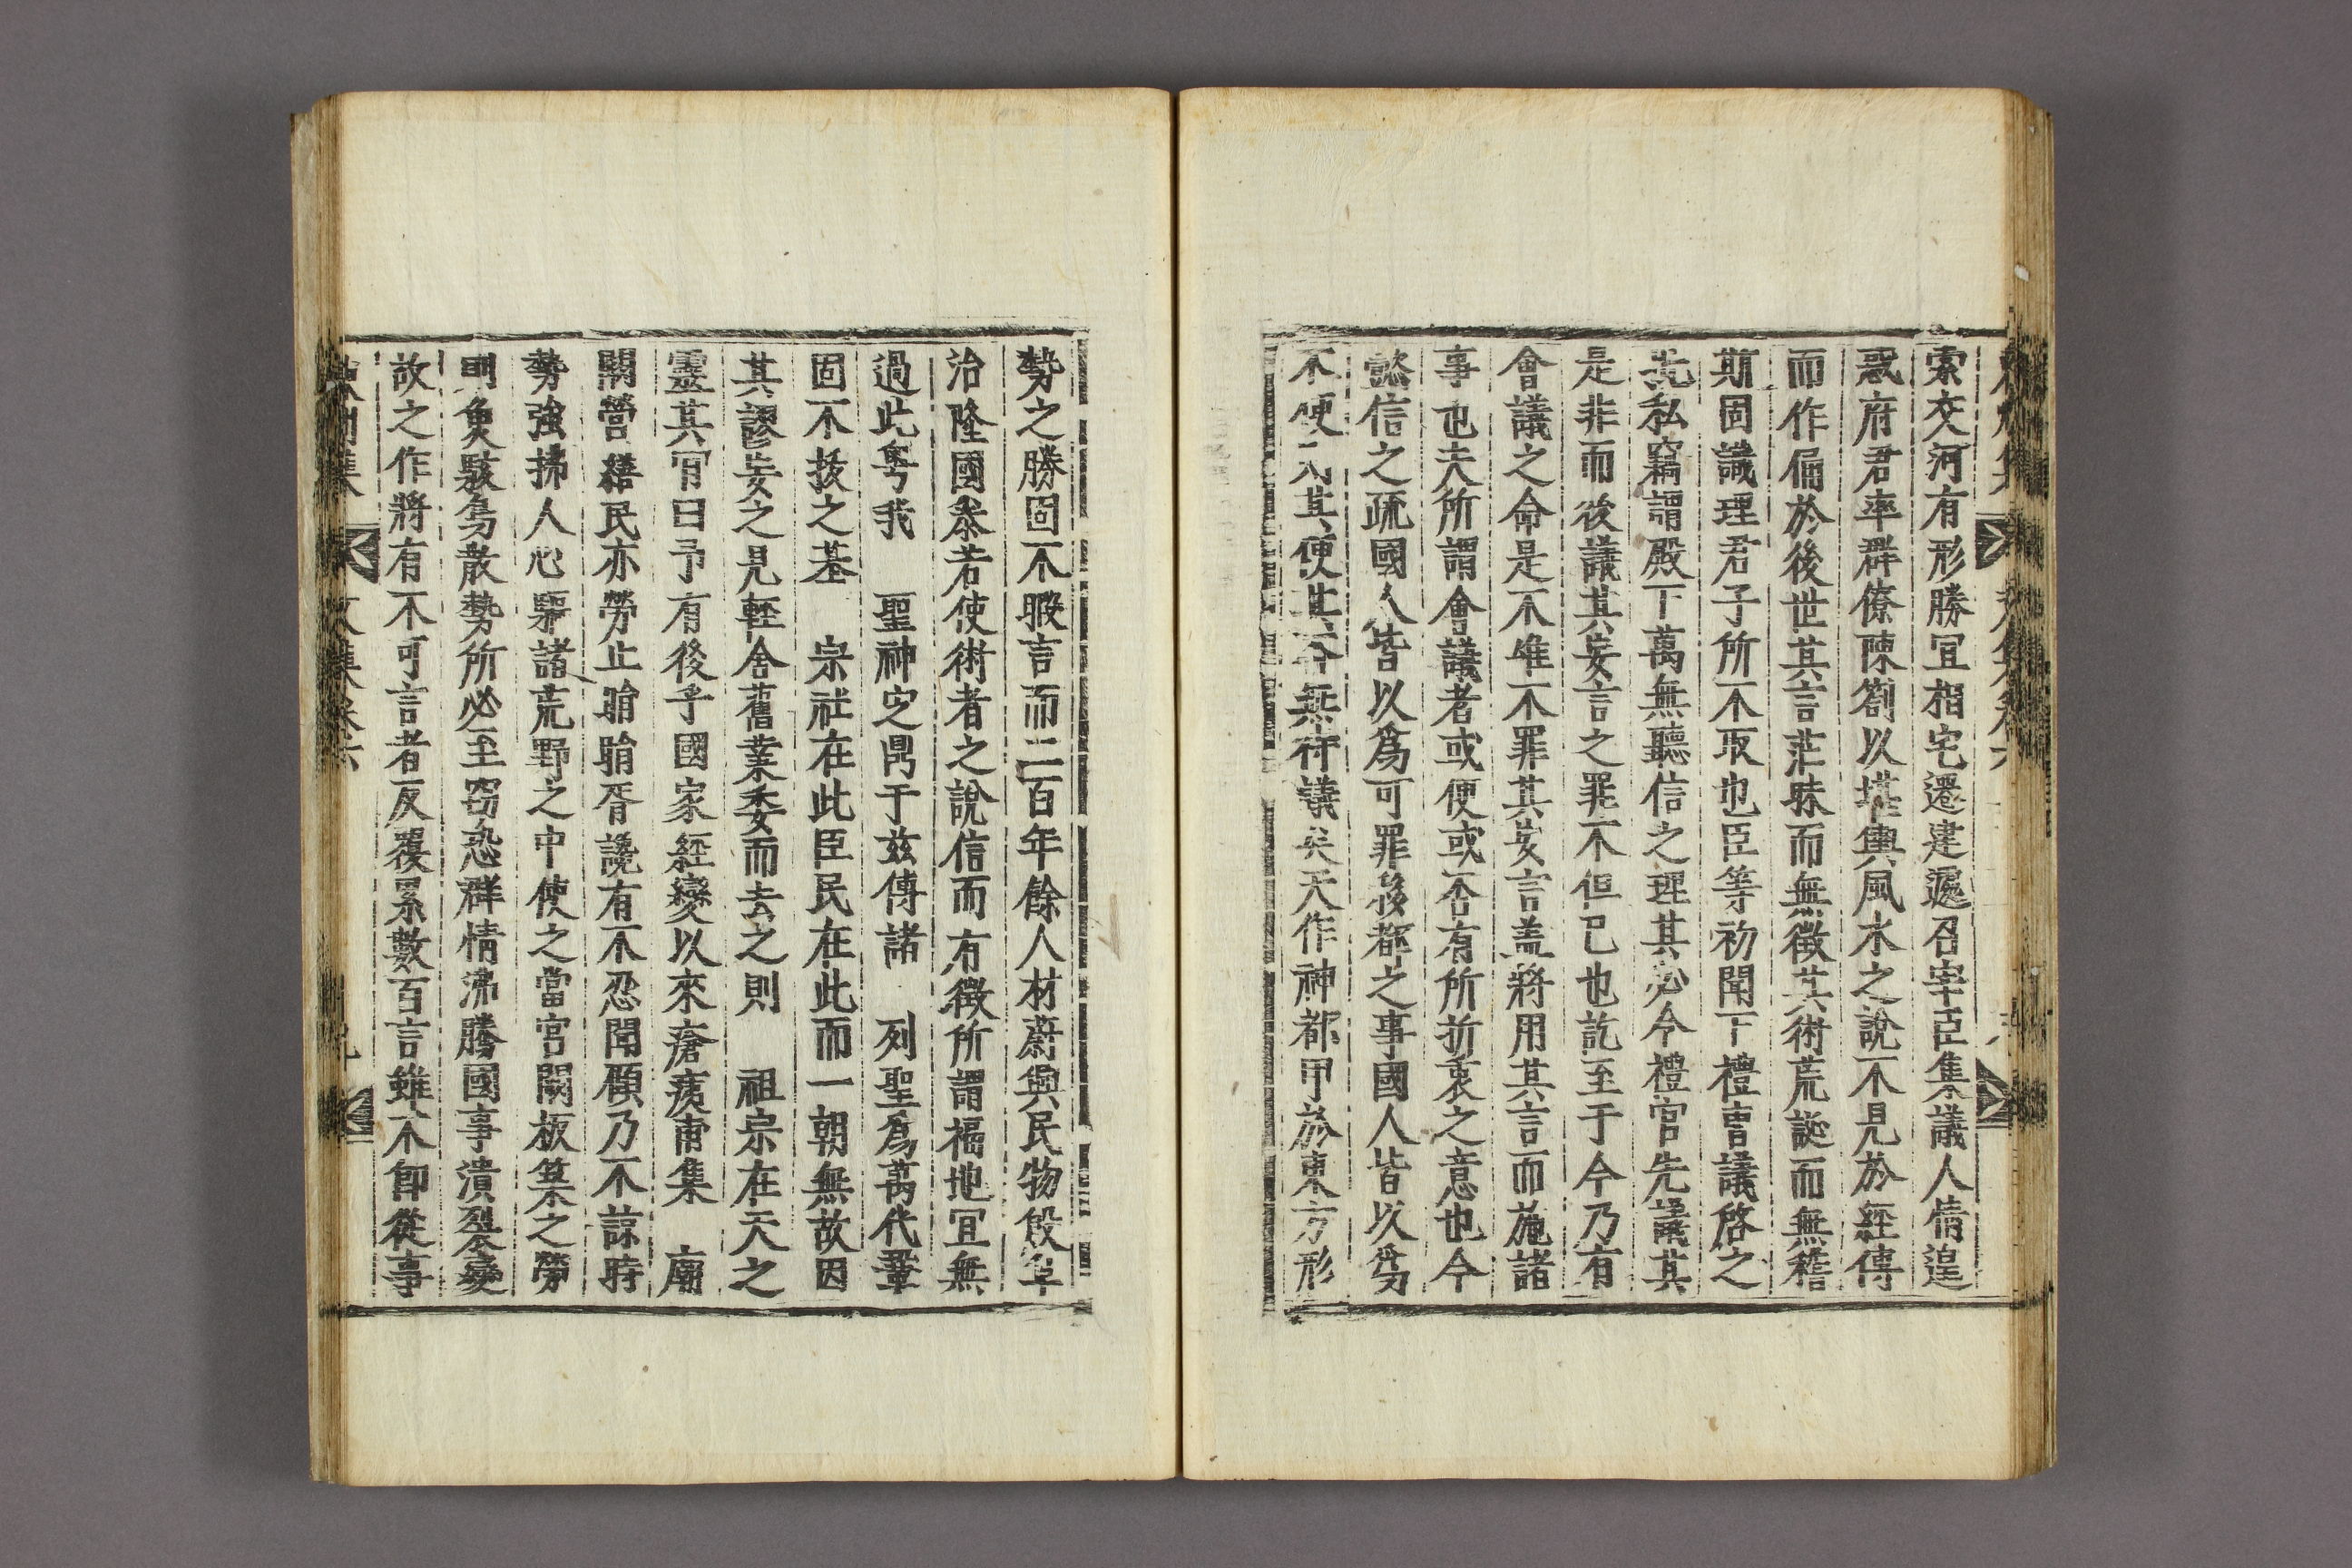 索交河有形勝宜相宅遷建遽召宰臣集議人情遑
惑府君率群僚陳劄以堪輿風水之說不見於經傳
而作俑於後世其言茫昧而無徵其術荒誕而無稽
斯固識理君子所不取也臣等初聞下禮曹議啓之
先私竊謂殿下萬無聽信之理其必令禮官先議其
是非而後議其妄言之罪不但已也訖至于今乃有
會議之命是不唯不罪其妄言盖將用其言而施諸
事也夫所謂會議者或便或否有所折衷之意也今
懿信之疏國人皆以爲可罪移都之事國人皆以爲
不便凡其便其否無待議矣天作神都甲於東方形
勢之勝固不暇言而二百年餘人材蔚興民物殷阜
治隆國泰若使術者之說信而有徵所謂福地宜無
過此粤我 聖神定鼎于茲傳諸 列聖爲萬代鞏
固不拔之基 宗社在此臣民在此而一朝無故因
其謬妄之見輕舍舊業委而去之則 祖宗在天之
靈其肯曰予有後乎國家經變以來瘡痍甫集 廟
闕營繕民亦勞止睊睊胥讒有不忍聞顧乃不諒時
勢強拂人心驅諸荒野之中使之當宮闕板築之勞
則魚駭鳥散勢所必至窃恐群情沸騰國事潰裂變
故之作將有不可言者反覆累數百言雖不卽從事
文集卷六